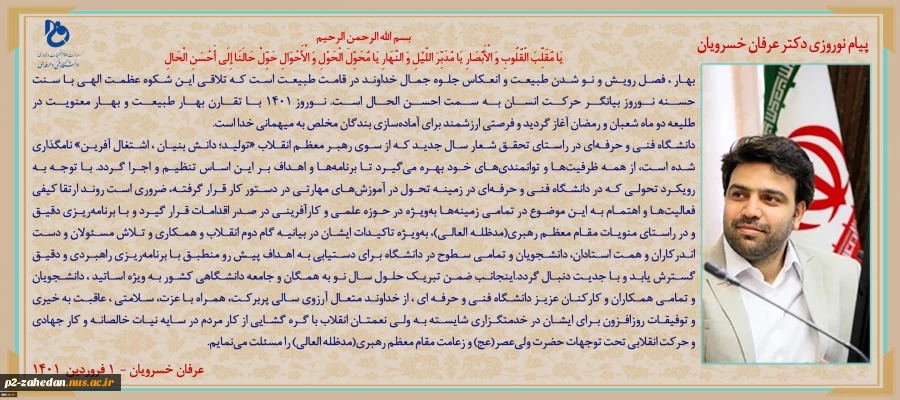 پیام نوروزی دکتر عرفان خسرویان
بسم الله الرحمن الرحیم
یَا مُقَلِّبَ الْقُلُوبِ وَ الْأَبْصَارِ یَا مُدَبِّرَ اللَّیْلِ وَ النَّهَارِ یَا مُحَوِّلَ الْحَوْلِ وَ الْأَحْوَالِ حَوِّلْ حَالَنَا إِلَى أَحْسَنِ الْحَالِ
بهار، فصل رویش و نو شدن طبیعت و انعکاس جلوه جمال خداوند در قامت طبیعت است که تلاقی این شکوه عظمت الهی با سنت
حسنه نوروز بیانگر حرکت انسان به سمت احسن الحال است. نوروز ۱۴۰۱ با تقارن بهار طبیعت و بهار معنویت در
طلیعه دو ماه شعبان و رمضان آغاز گردید و فرصتی ارزشمند برای آماده‌سازی بندگان مخلص به میهمانی خدا است.
دانشگاه فنی و حرفه‌ای در راستای تحقق شعار سال جدید که از سوی رهبر معظم انقلاب «تولید؛ دانش بنیان ، اشتغال آفرین» نامگذاری
شده است، از همه ظرفیت‌ها و توانمندی‌های خود بهره می‌گیرد تا برنامه‌ها و اهداف بر این اساس تنظیم و اجرا گردد. با توجه به
رویکرد تحولی که در دانشگاه فنی و حرفه‌ای در زمینه تحول در آموزش‌های مهارتی در دستور کار قرار گرفته، ضروری است روند ارتقا کیفی
فعالیت‌ها و اهتمام به این موضوع در تمامی زمینه‌ها به‌ویژه در حوزه علمی و کارآفرینی در صدر اقدامات قرار گیرد و با برنامه‌ریزی دقیق
و در راستای منویات مقام معظم رهبری(مدظله العالی)، به‌ویژه تاکیدات ایشان در بیانیه گام دوم انقلاب و همکاری و تلاش مسئولان و دست
اندرکاران و همت استادان، دانشجویان و تمامی سطوح در دانشگاه برای دستیابی به اهداف پیش رو منطبق با برنامه‌ریزی راهبردی و دقیق
گسترش یابد و با جدیت دنبال گردد.اینجانب ضمن تبریک حلول سال نو به همگان و جامعه دانشگاهی کشور به ویژه اساتید ، دانشجویان
و تمامی همکاران و کارکنان عزیز دانشگاه فنی و حرفه ای ، از خداوند متعال آرزوی سالی پربرکت، همراه با عزت، سلامتی ، عاقبت به خیری
و توفیقات روزافزون برای ایشان در خدمتگزاری شایسته به ولی نعمتان انقلاب با گره گشایی از کار مردم در سایه نیات خالصانه و کار جهادی
و حرکت انقلابی تحت توجهات حضرت ولی‌عصر(عج) و زعامت مقام معظم رهبری(مدظله العالی) را مسئلت می‌نمایم.
عرفان خسرویان - ۱ فروردین ۱۴۰۱
p2-zahedan.nus.ac.ir